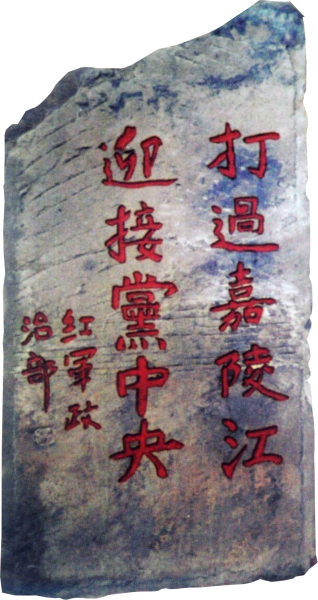 打過嘉陵江
迎接黨中央
红軍政
治部